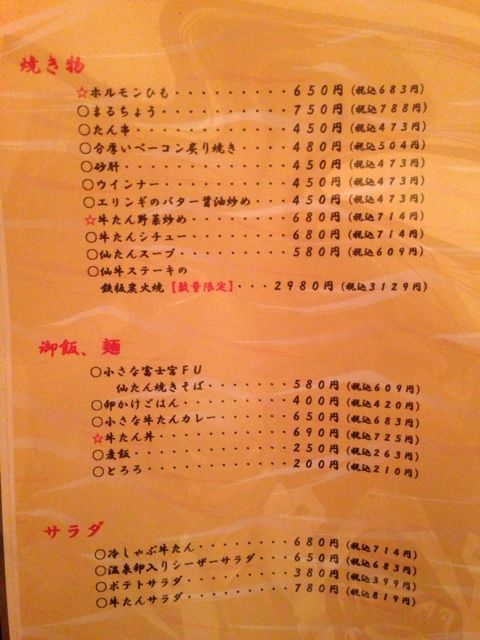 焼き物
☆ホルモンひも・・・・・・・・・・650円(税込683円)
○まるちょう・・・・・・・・・・・750円(税込788円)
○たん串・・・・・・・・・・・・・450円(税込473円)
○分厚いベーコン炙り焼き・・・・480円(税込504円)
○砂肝・・・・・・・・・・・・・・450円(税込473円)
○ウインナー・・・・・・・・・・・450円(税込473円)
○エリンギのバター醤油炒め・・・450円(税込473円)
☆牛たん野菜炒め・・・・・・・・・680円(税込714円)
○牛たんシチュー・・・・・・・・・680円(税込714円)
○仙たんスープ・・・・・・・・・・580円(税込609円)
○仙牛ステーキの
鉄板炭火焼【数量限定】・・・2980円(税込3129円)
御飯、麺
○小さな富士宮FU
仙たん焼きそば・・・・・・・・580円(税込609円)
○卵かけごはん・・・・・・・・・・400円(税込420円)
○小さな牛たんカレー・・・・・・・650円(税込683円)
☆牛たん丼・・・・・・・・・・・・690円(税込725円)
○麦飯・・・・・・・・・・・・・・250円(税込263円)
○とろろ・・・・・・・・・・・・・200円(税込210円)
サラダ
○冷しゃぶ牛たん・・・・・・・・・680円(税込714円)
○温泉卵入りシーザーサラダ・・・650円(税込683円)
○ポテトサラダ・・・・・・・・・・380円(税込399円)
○牛たんサラダ・・・・・・・・・・780円(税込819円)